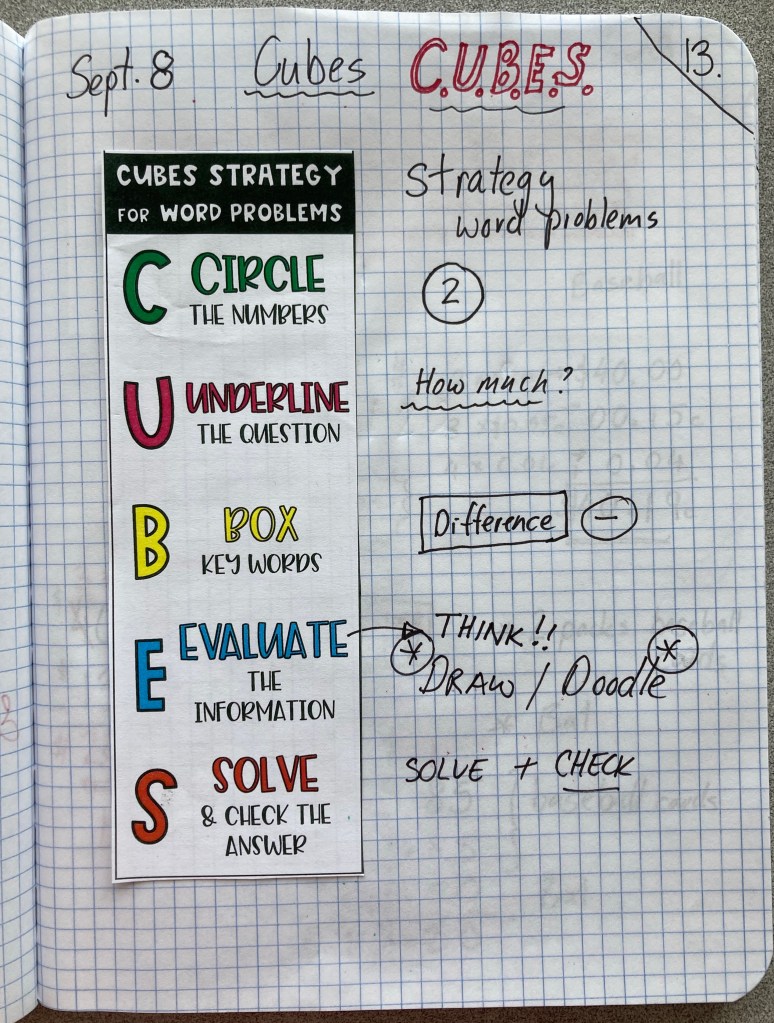 Sept. 8 Cubes C.U.B.E.S. 13.
CUBES STRATEGY
FOR WORD PROBLEMS
Strategy
word problems
C CIRCLE
THE NUMBERS
2
U UNDERLINE
THE QUESTION
How much?
B BOX
KEY WORDS
Difference −
E EVALUATE
THE
INFORMATION
THINK!!
* DRAW / Doodle *
S SOLVE
& CHECK THE
ANSWER
SOLVE + CHECK